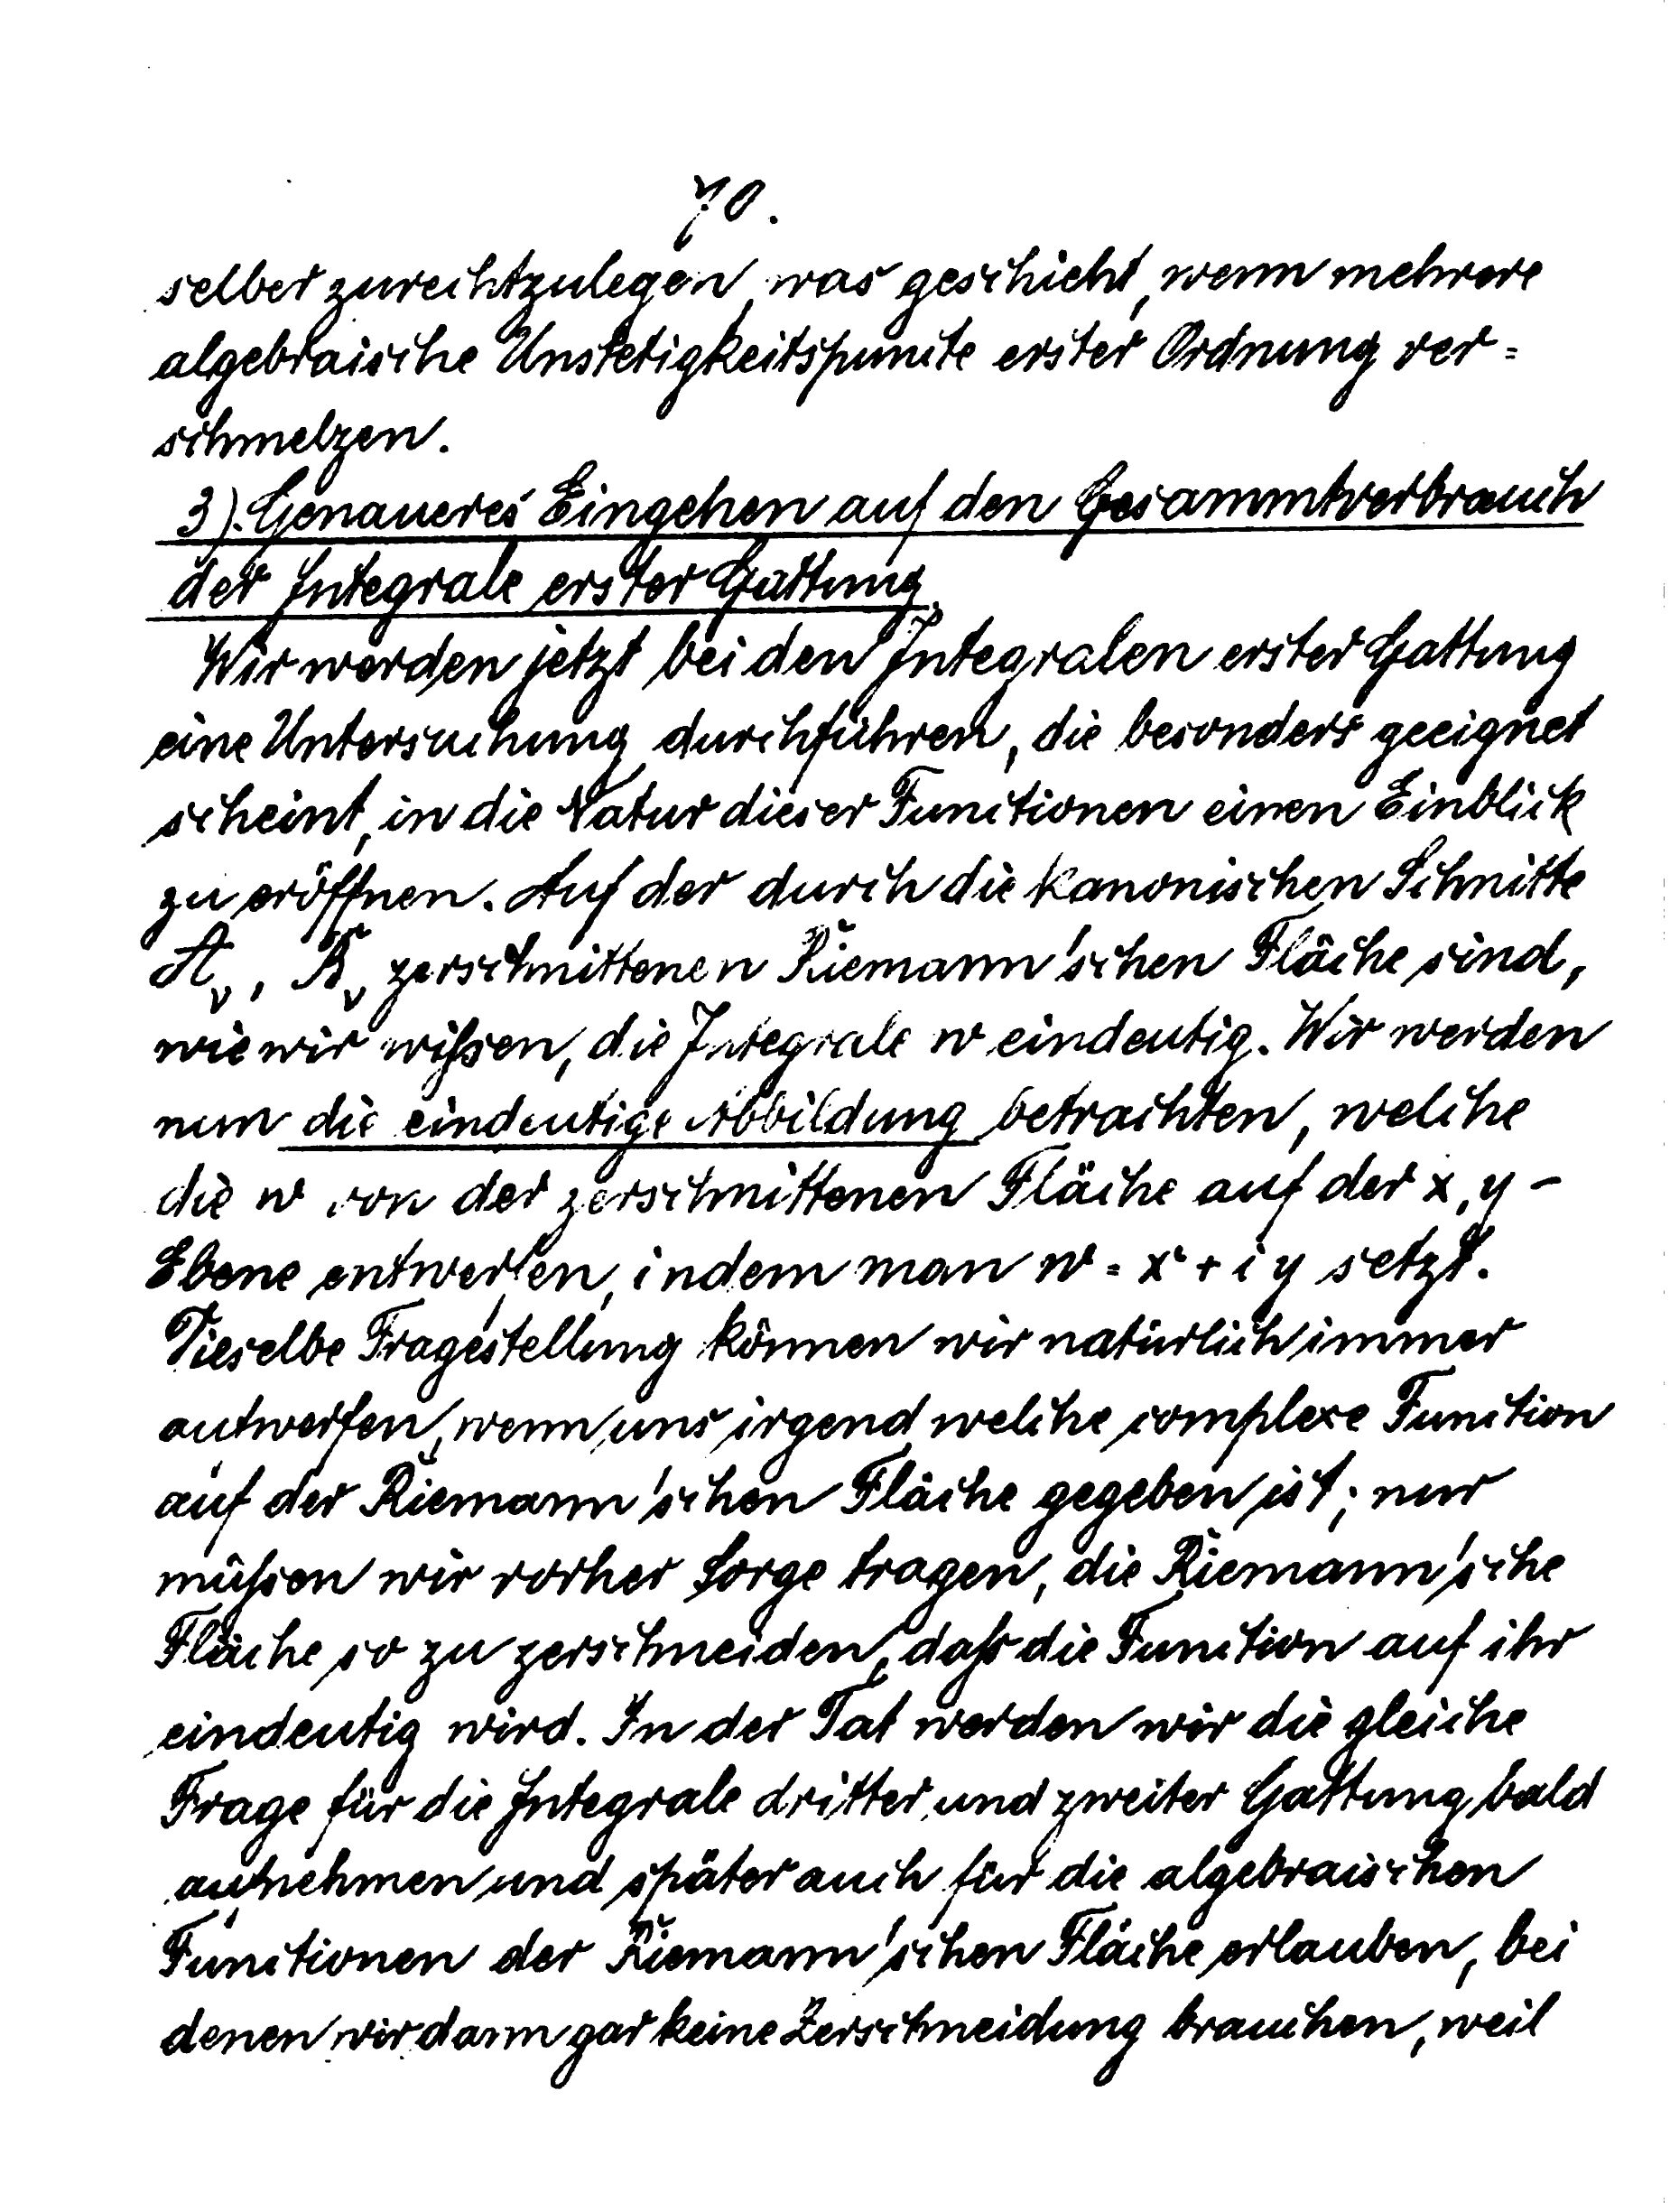 70.
selber zurechtzulegen, was geschieht, wenn mehrere
algebraische Unstetigkeitspuncte erster Ordnung ver=
schmelzen.
3). Genaueres Eingehen auf den Gesammtverbrauch
der Integrale erster Gattung.
Wir werden jetzt bei den Integralen erster Gattung
eine Untersuchung durchführen, die besonders geeignet
scheint, in die Natur dieser Functionen einen Einblick
zu eröffnen. Auf der durch die kanonischen Schnitte
A_ν, B_ν zerschnittenen Riemann'schen Fläche sind,
wie wir wißen, die Integrale w eindeutig. Wir werden
nun die eindeutige Abbildung betrachten, welche
die w von der zerschnittenen Fläche auf der x, y -
Ebene entwerfen, indem man w = x + i y setzt.
Dieselbe Fragestellung können wir natürlich immer
antwerfen, wenn uns irgend welche complexe Function
auf der Riemann'schen Fläche gegeben ist; nur
müßen wir vorher Sorge tragen, die Riemann'sche
Fläche so zu zerschneiden, daß die Function auf ihr
eindeutig wird. In der Tat werden wir die gleiche
Frage für die Integrale dritter und zweiter Gattung bald
aufnehmen und später auch für die algebraischen
Functionen der Riemann'schen Fläche erlauben, bei
denen wir dann gar keine Zerschneidung brauchen, weil